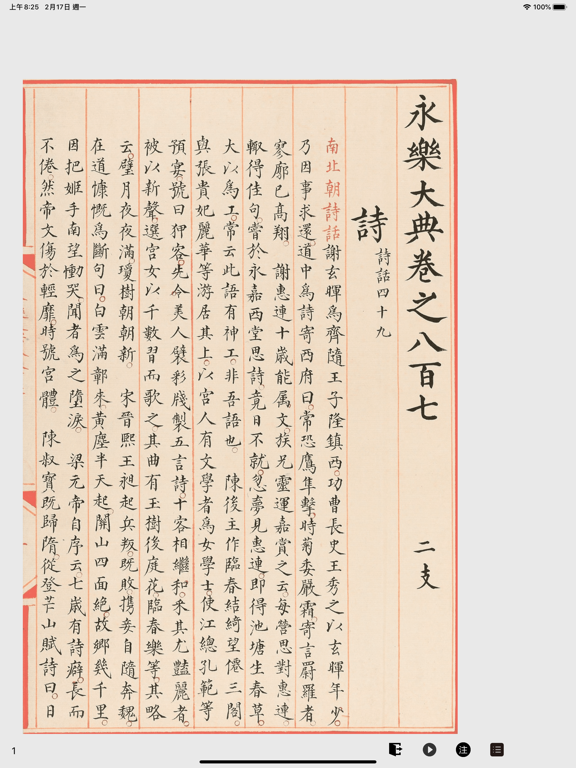 上午8:25 2月17日 週一
100%
永樂大典卷之八百七 二支
詩 詩話四十九
南北朝詩話謝玄暉為齊隨王子隆鎮西功曹長史王秀之以玄暉年少
乃因事求還道中為詩寄西府曰常恐鷹隼擊時菊委嚴霜寄言罻羅者
寥廓已高翔 謝惠連十歲能属文族兄靈運嘉賞之云每營思對惠連
輙得佳句嘗於永嘉西堂思詩竟日不就忽夢見惠連即得池塘生春草
大以為工常云此語有神工非吾語也 陳後主作臨春結綺望僊三閣
與張貴妃麗華等游居其上以宮人有文學者為女學士使江總孔範等
預宴號曰狎客先令美人襞彩牋製五言詩十客相繼和采其尤豔麗者
被以新聲選宮女以千數習而歌之其曲有玉樹後庭花臨春樂等其略
云璧月夜夜滿瓊樹朝朝新 宋晉熙王昶起兵叛既敗携妾自隨奔魏
在道慷慨為斷句曰白雲滿鄣來黃塵半天起關山四面絶故鄉幾千里
因把姬手南望慟哭聞者為之墮淚 梁元帝自序云七歲有詩癖長而
不倦然帝文傷於輕靡時號宮體 陳叔寳既歸隋從登芒山賦詩曰日
1
注